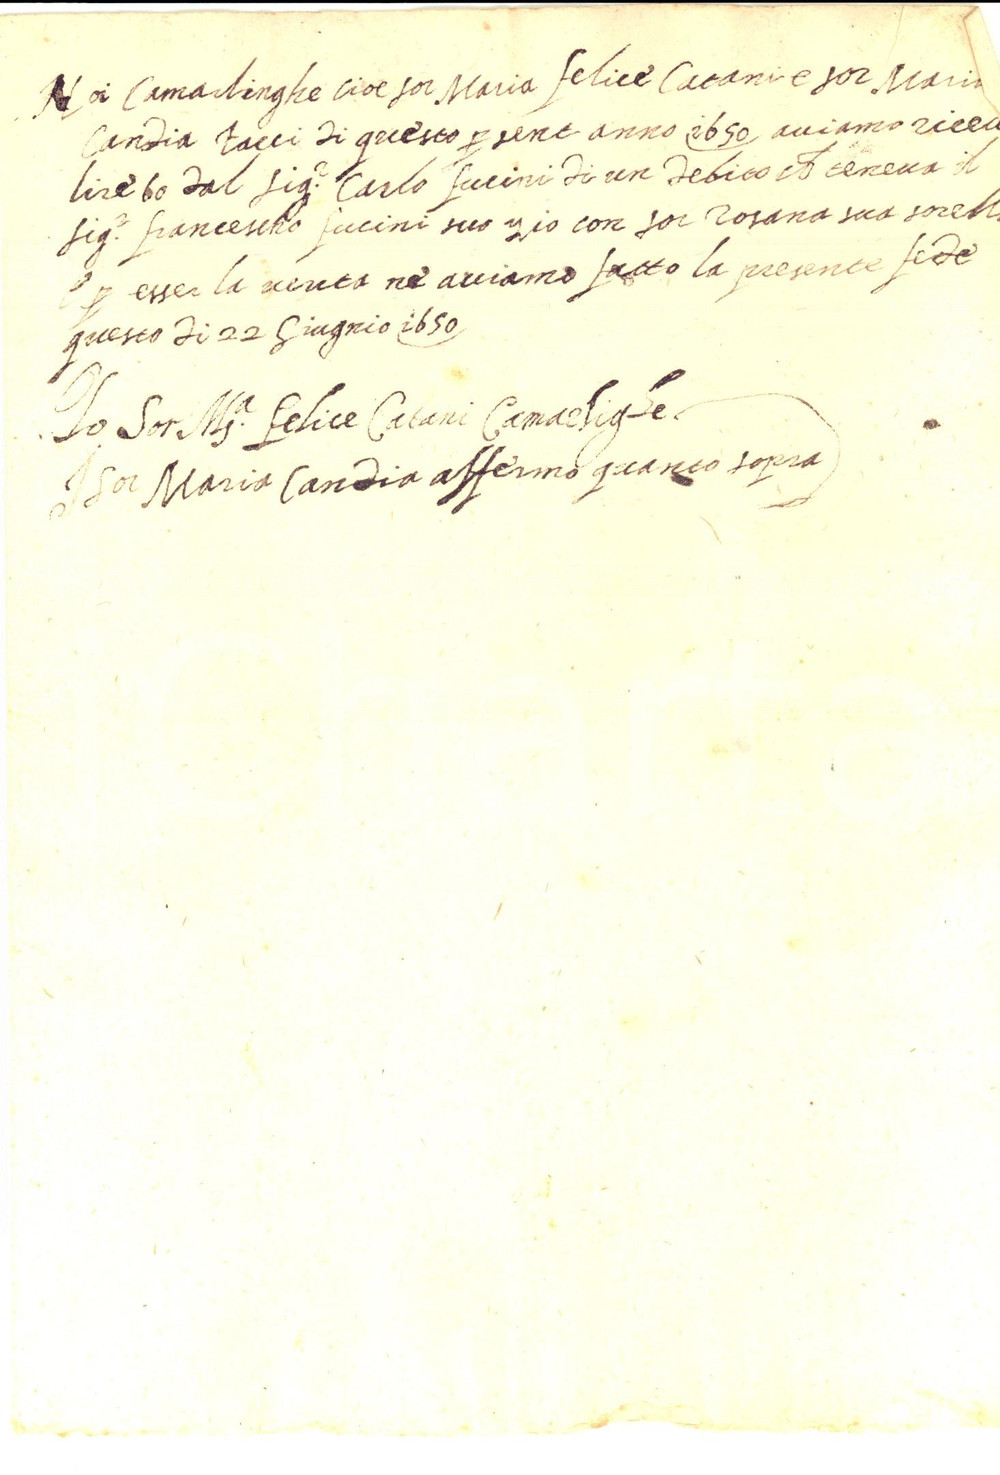 Noi Camarlinghe cioe sor Maria felice Catani e sor Maria
Candia Tacci di questo p sente anno 1650 auiamo riceu
lire 60 dal sig.r Carlo fucini di un debito ch teneua il
sig.r francescho fucini suo zio con sor Rosana sua sorell
e p esser la uerita ne auiamo fatto la presente fede
questo di 22 Giugnio 1650
Io Sor M.a felice Catani Camarlighe
I sor Maria Candia affermo quanto sopra